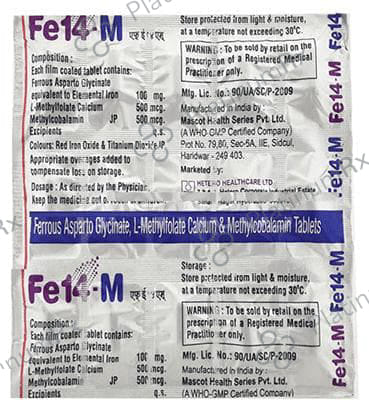 Fe14-M एफ ई १४ एम
Composition :
Each film coated tablet contains:
Ferrous Asparto Glycinate
equivalent to Elemental Iron 100 mg.
L-Methylfolate Calcium 500 mcg.
Methylcobalamin JP 500 mcg.
Excipients q.s.
Colours: Red Iron Oxide & Titanium Dioxide IP.
Appropriate overages added to
compensate loss on storage.
Dosage : As directed by the Physician.
Keep the medicine out of
Store protected from light & moisture,
at a temperature not exceeding 30°C.
WARNING : To be sold by retail on the
prescription of a Registered Medical
Practitioner only.
Mfg. Lic. No.: 90/UA/SC/P-2009
Manufactured in India by :
Mascot Health Series Pvt. Ltd.
(A WHO-GMP Certified Company)
Plot No. 79,80, Sec-5A, IIE, Sidcul,
Haridwar - 249 403.
Marketed by:
HETERO HEALTHCARE LTD.
Hetero Corporate Industrial Estate
Fe14-M Fe14
Ferrous Asparto Glycinate, L-Methylfolate Calcium & Methylcobalamin Tablets
Fe14-M एफ ई १४ एम
Composition :
Each film coated tablet contains:
Ferrous Asparto Glycinate
equivalent to Elemental Iron 100 mg.
L-Methylfolate Calcium 500 mcg.
Methylcobalamin JP 500 mcg.
q.s.
Storage :
Store protected from light & moisture,
at a temperature not exceeding 30°C.
WARNING : To be sold by retail on the
prescription of a Registered Medical
Practitioner only.
Mfg. Lic. No.: 90/UA/SC/P-2009
Manufactured in India by :
Mascot Health Series Pvt. Ltd.
(A WHO-GMP Certified Company)
Fe14-M Fe14-M